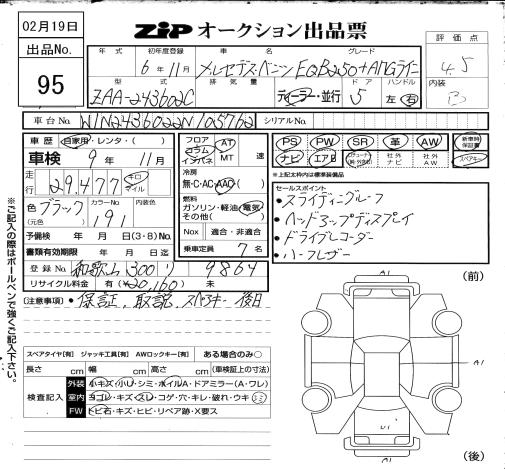 02月19日
ZiP オークション出品票
出品No.
95
年式 初年度登録 車名 グレード
6年11月 メルセデス・ベンツ EQB250+AMGライン
型式 排気量 ドア ハンドル
ZAA-243602C ディーラー・並行 5 左 右
評価点
4.5
内装
B
車台No. W1N2436022N105762 シリアルNo.
車歴 自家用・レンタ・( )
車検 9年 11月
走行 29,477 キロ マイル
色 ブラック カラーNo. 191 内装色
(元色)
予備検 年 月 日(3・8)No.
書類有効期限 年 月 日迄
登録No. 和歌山 300 り 9864
リサイクル料金 有(¥20,160) 未
フロア コラム インパネ AT MT 速
冷房
無・C・AC・AAC
燃料
ガソリン・軽油・電気・その他( )
Nox 適合・非適合
乗車定員 7名
PS PW SR 革 AW 新車時保証書
ナビ エアB 社外ナビ 社外AW スペアキー
※上記太枠内は標準装備品
セールスポイント
・スライディングルーフ
・ヘッドアップディスプレイ
・ドライブレコーダー
・ハーフレザー
(注意事項)・保証、取説、スペアキー後日
※ご記入の際はボールペンで強くご記入下さい。
スペアタイヤ[有] ジャッキ工具[有] AWロックキー[有] ある場合のみ○
長さ cm 幅 cm 高さ cm (車検証上の寸法)
検査記入
外装 小キズ・小U・シミ・ホイルA・ドアミラー(A・ワレ)
室内 ヨゴレ・キズ・スレ・コゲ・穴・キレ・破れ・ウキ・シミ
FW トビ石・キズ・ヒビ・リペア跡・X要ス
(前)
A1
A1
U1
A1
(後)